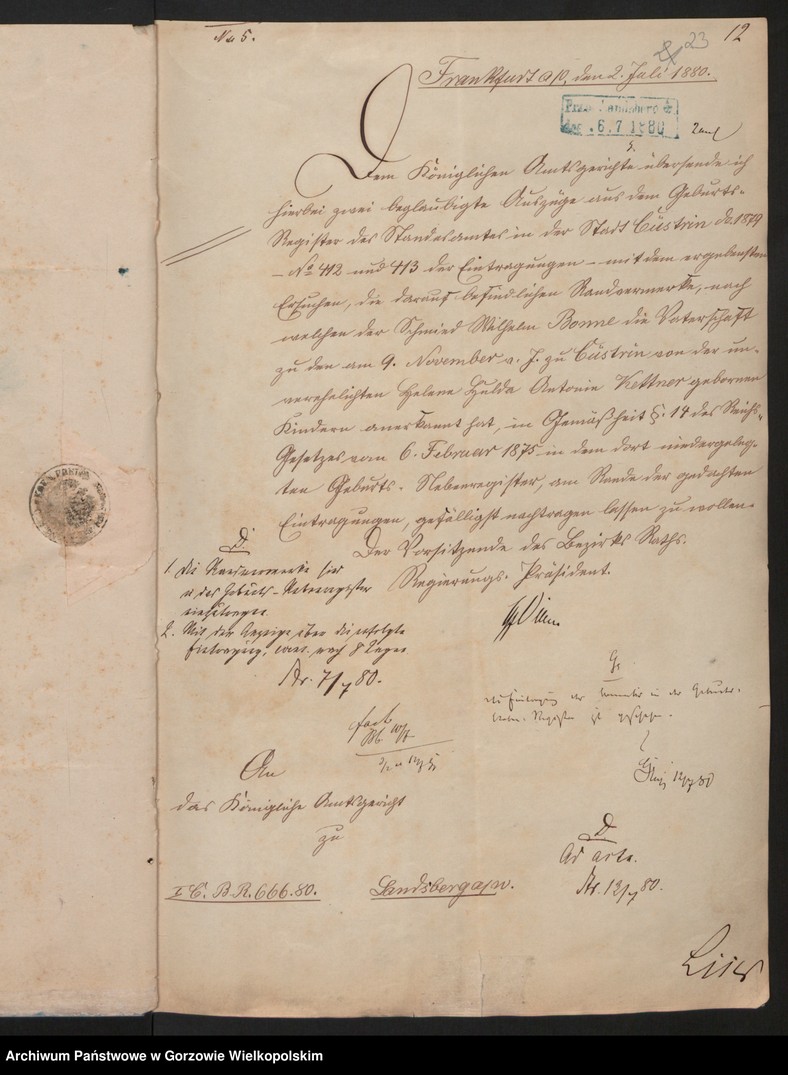 No 5.
12
23
Frankfurt a/O, den 2. Juli 1880.
6.7.1880
Dem Königlichen Amtsgerichte übersende ich
hierbei zwei beglaubigte Auszüge aus dem Geburts-
Register des Standesamtes in der Stadt Cüstrin do. 1879
- No 412 und 413 der Eintragungen - mit dem ergebensten
Ersuchen, die darauf befindlichen Randvermerke, nach
welchen der Schmied Wilhelm Bonne die Vaterschaft
zu den am 9. November v. J. zu Cüstrin von der un-
verehelichten Helene Hulda Antonie Kettner geborenen
Kindern anerkannt hat, in Gemäßheit §. 14 des Reichs-
Gesetzes vom 6. Februar 1875 in dem dort niedergeleg-
ten Geburts-Nebenregister, am Rande der gedachten
Eintragungen, gefälligst nachtragen lassen zu wollen.
Der Vorsitzende des Bezirks Raths.
Regierungs-Präsident.
1. Die Randvermerke sind
Geburts-Nebenregister
einzutragen
2. Mit der Anzeige über die erfolgte
Eintragung, nach 8 Tagen
7/7 80.
die Eintragung der in der Geburts-
Neben-Register ist geschehen.
12/7 80
An
das Königliche Amtsgericht
zu
Landsberg a/W.
I C. B. R. 666. 80.
Ad acta.
12/7 80.
Archiwum Państwowe w Gorzowie Wielkopolskim